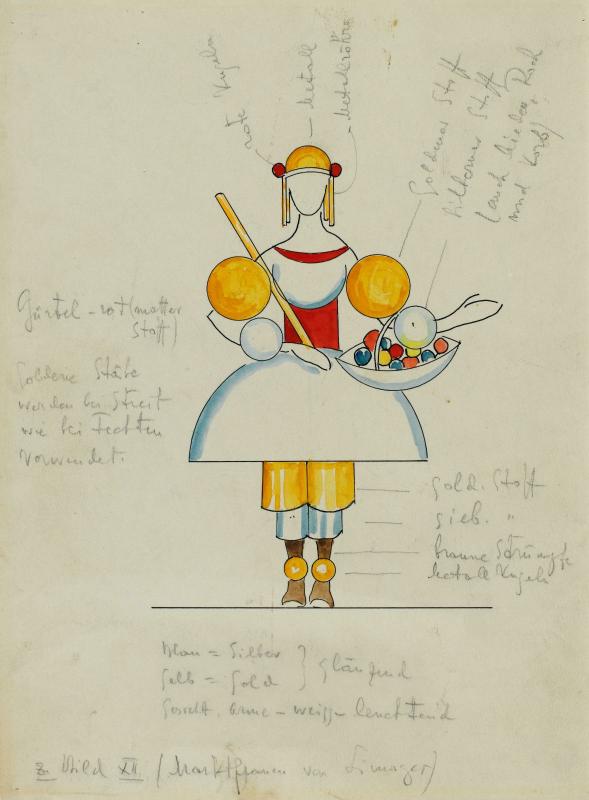 rote Kugeln
Metall
Metallröhre
Goldener Stoff
silberner Stoff
(auch Mieder, Rock
und Korb)
Gürtel - rot (matter
Stoff)
Goldene Stäbe
werden bei Streit
wie bei Fechten
verwendet.
gold. Stoff
sieb. "
braune Strümpfe
Metall Kugeln
blau = Silber
gelb = Gold } glänzend
Gesicht, Arme - weiss - leuchtend
Zu Bild XII (Marktfrauen von Limoges)